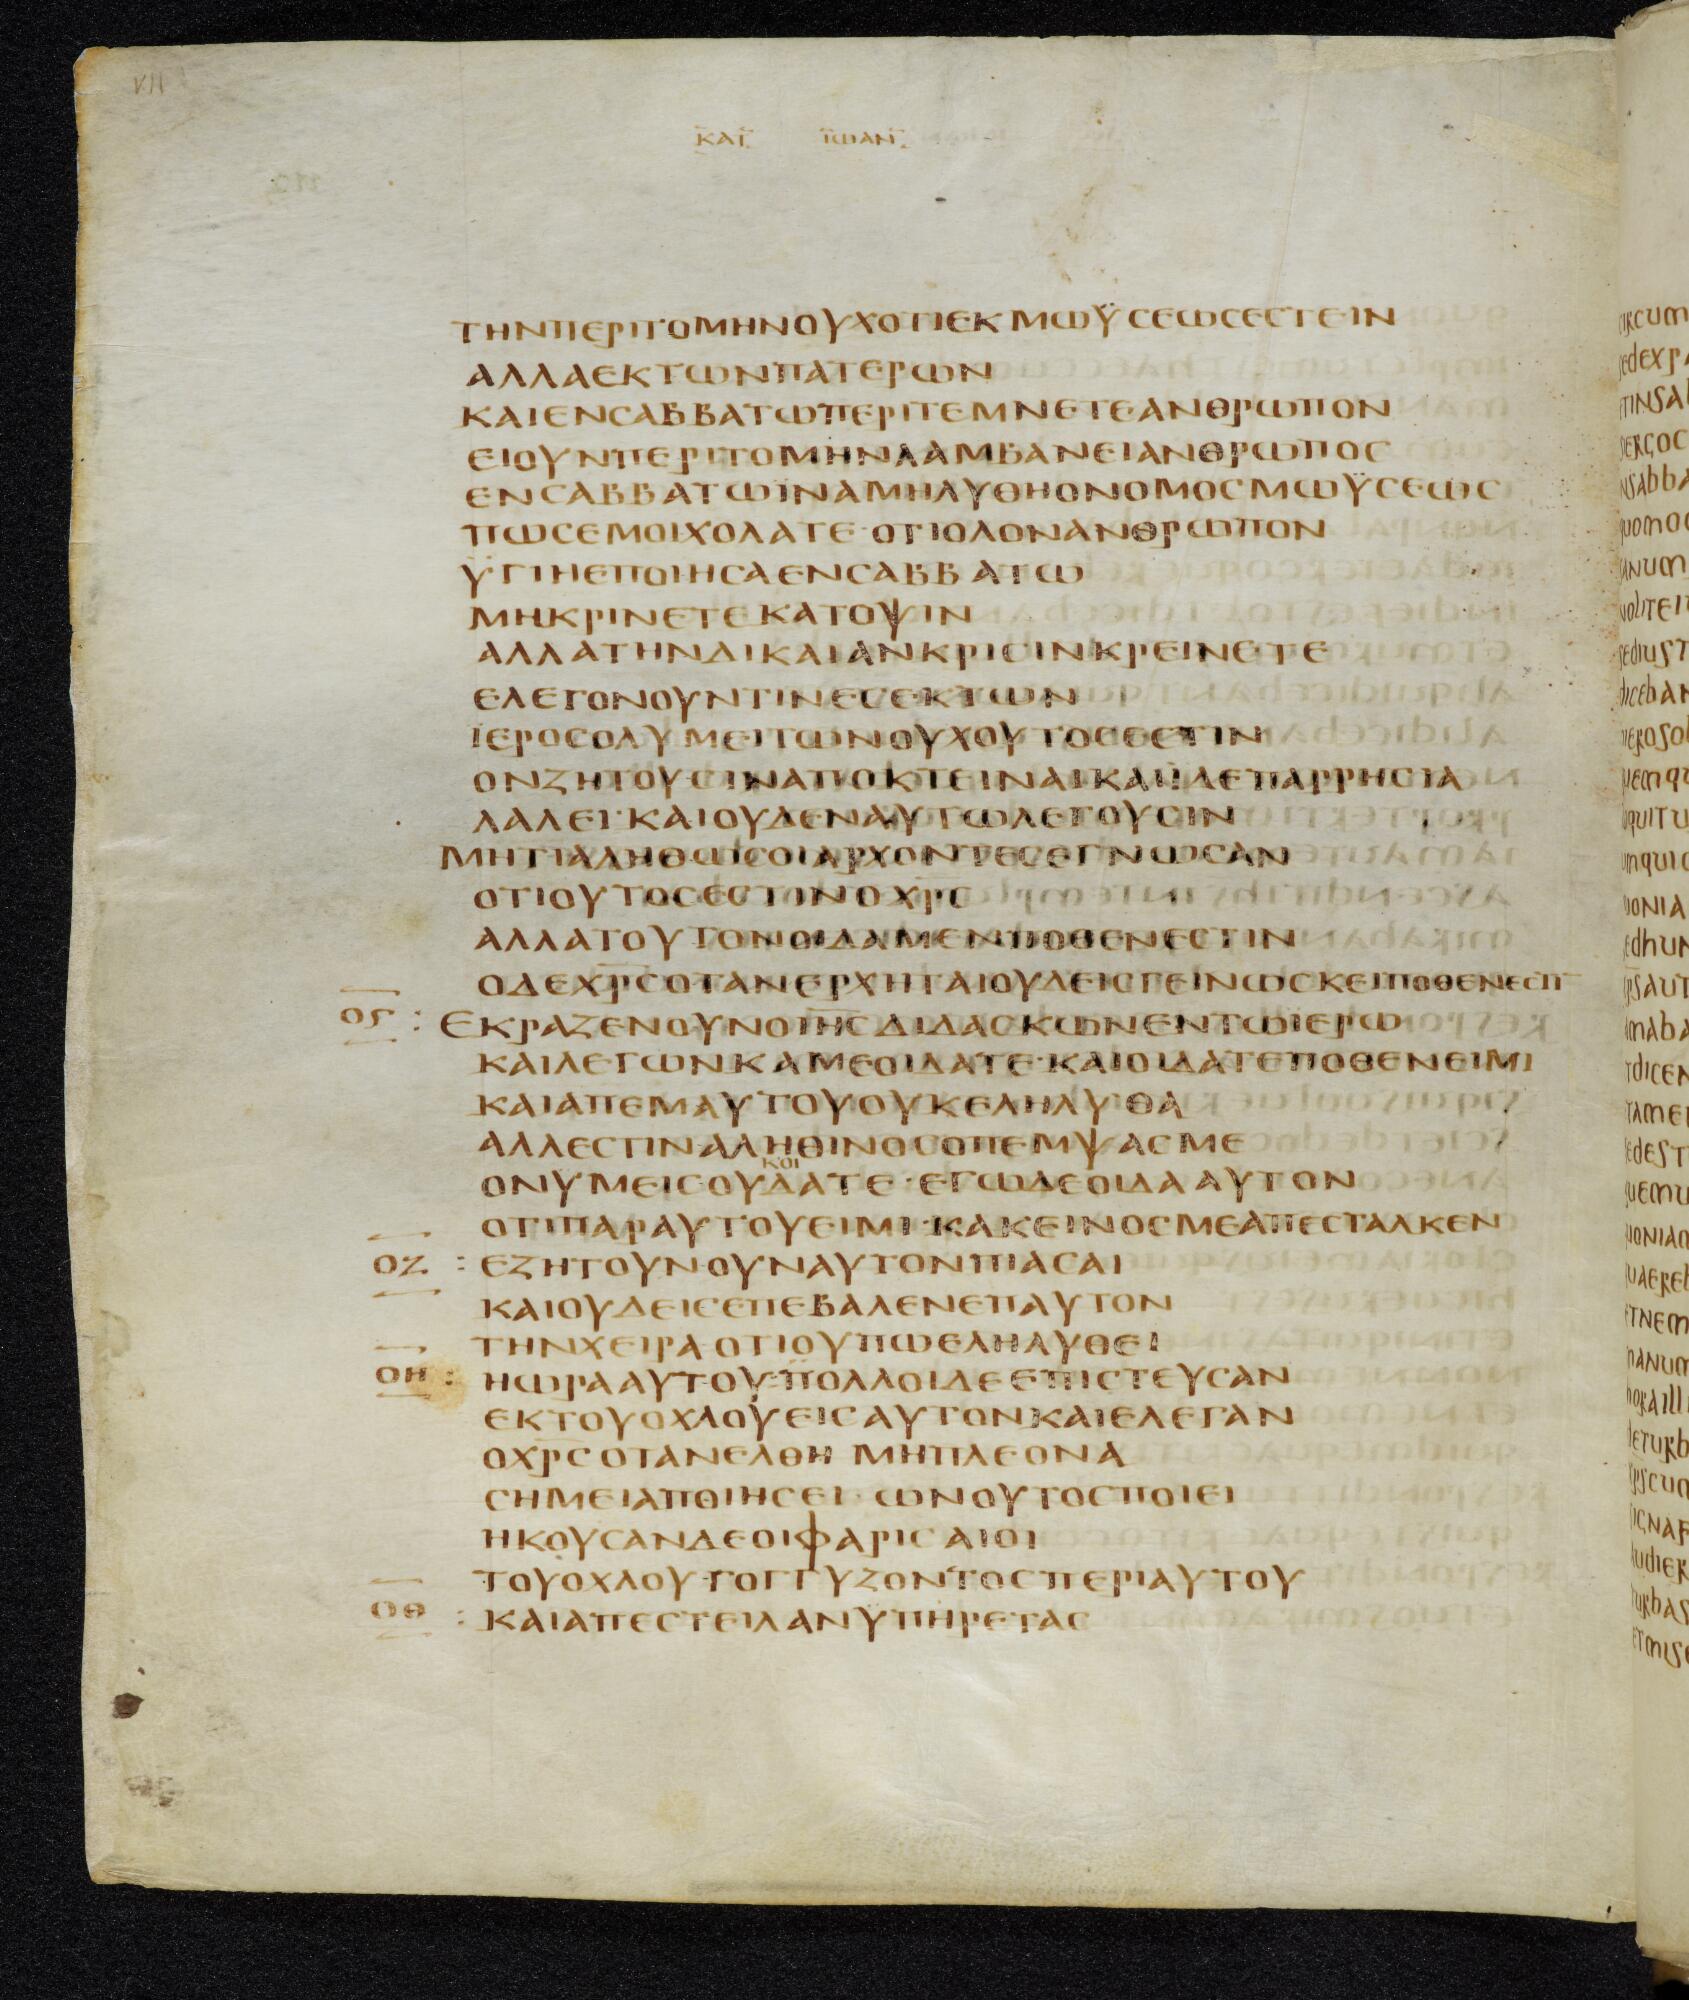 VII
ΚΑΤ ΙΩΑΝ
ΤΗΝΠΕΡΙΤΟΜΗΝΟΥΧΟΤΙΕΚΜΩΫΣΕΩΣΕΣΤΕΙΝ
ΑΛΛΑΕΚΤΩΝΠΑΤΕΡΩΝ
ΚΑΙΕΝΣΑΒΒΑΤΩΠΕΡΙΤΕΜΝΕΤΕΑΝΘΡΩΠΟΝ
ΕΙΟΥΝΠΕΡΙΤΟΜΗΝΛΑΜΒΑΝΕΙΑΝΘΡΩΠΟΣ
ΕΝΣΑΒΒΑΤΩΙΝΑΜΗΛΥΘΗΟΝΟΜΟΣΜΩΫΣΕΩΣ
ΠΩΣΕΜΟΙΧΟΛΑΤΕ·ΟΤΙΟΛΟΝΑΝΘΡΩΠΟΝ
ΫΓΙΗΕΠΟΙΗΣΑΕΝΣΑΒΒΑΤΩ
ΜΗΚΡΙΝΕΤΕΚΑΤΟΨΙΝ
ΑΛΛΑΤΗΝΔΙΚΑΙΑΝΚΡΙΣΙΝΚΡΕΙΝΕΤΕ
ΕΛΕΓΟΝΟΥΝΤΙΝΕΣΕΚΤΩΝ
ΙΕΡΟΣΟΛΥΜΕΙΤΩΝΟΥΧΟΥΤΟΣΕΣΤΙΝ
ΟΝΖΗΤΟΥΣΙΝΑΠΟΚΤΕΙΝΑΙΚΑΙΪΔΕΠΑΡΡΗΣΙΑ
ΛΑΛΕΙ·ΚΑΙΟΥΔΕΝΑΥΤΩΛΕΓΟΥΣΙΝ
ΜΗΤΙΑΛΗΘΩΣΟΙΑΡΧΟΝΤΕΣΕΓΝΩΣΑΝ
ΟΤΙΟΥΤΟΣΕΣΤΙΝΟΧΡΣ
ΑΛΛΑΤΟΥΤΟΝΟΙΔΑΜΕΝΠΟΘΕΝΕΣΤΙΝ
ΟΔΕΧΡΣΟΤΑΝΕΡΧΗΤΑΙΟΥΔΕΙΣΓΕΙΝΩΣΚΕΙΠΟΘΕΝΕΣΤΙ
ΟϚ : ΕΚΡΑΖΕΝΟΥΝΟΙΗΣΔΙΔΑΣΚΩΝΕΝΤΩΙΕΡΩ
ΚΑΙΛΕΓΩΝΚΑΜΕΟΙΔΑΤΕ·ΚΑΙΟΙΔΑΤΕΠΟΘΕΝΕΙΜΙ
ΚΑΙΑΠΕΜΑΥΤΟΥΟΥΚΕΛΗΛΥΘΑ
ΑΛΛΕΣΤΙΝΑΛΗΘΙΝΟΣΟΠΕΜΨΑΣΜΕ
κοι
ΟΝΥΜΕΙΣΟΥΔΑΤΕ·ΕΓΩΔΕΟΙΔΑΑΥΤΟΝ
ΟΤΙΠΑΡΑΥΤΟΥΕΙΜΙ·ΚΑΚΕΙΝΟΣΜΕΑΠΕΣΤΑΛΚΕΝ
ΟΖ : ΕΖΗΤΟΥΝΟΥΝΑΥΤΟΝΠΙΑΣΑΙ
ΚΑΙΟΥΔΕΙΣΕΠΕΒΑΛΕΝΕΠΑΥΤΟΝ
ΤΗΝΧΕΙΡΑ·ΟΤΙΟΥΠΩΕΛΗΛΥΘΕΙ
ΟΗ : ΗΩΡΑΑΥΤΟΥ:ΠΟΛΛΟΙΔΕΕΠΙΣΤΕΥΣΑΝ
ΕΚΤΟΥΟΧΛΟΥΕΙΣΑΥΤΟΝΚΑΙΕΛΕΓΑΝ
ΟΧΡΣΟΤΑΝΕΛΘΗ ΜΗΠΛΕΟΝΑ
ΣΗΜΕΙΑΠΟΙΗΣΕΙ ΩΝΟΥΤΟΣΠΟΙΕΙ
ΗΚΟΥΣΑΝΔΕΟΙΦΑΡΙΣΑΙΟΙ
ΤΟΥΟΧΛΟΥΓΟΓΓΥΖΟΝΤΟΣΠΕΡΙΑΥΤΟΥ
ΟΘ : ΚΑΙΑΠΕΣΤΕΙΛΑΝΥΠΗΡΕΤΑΣ